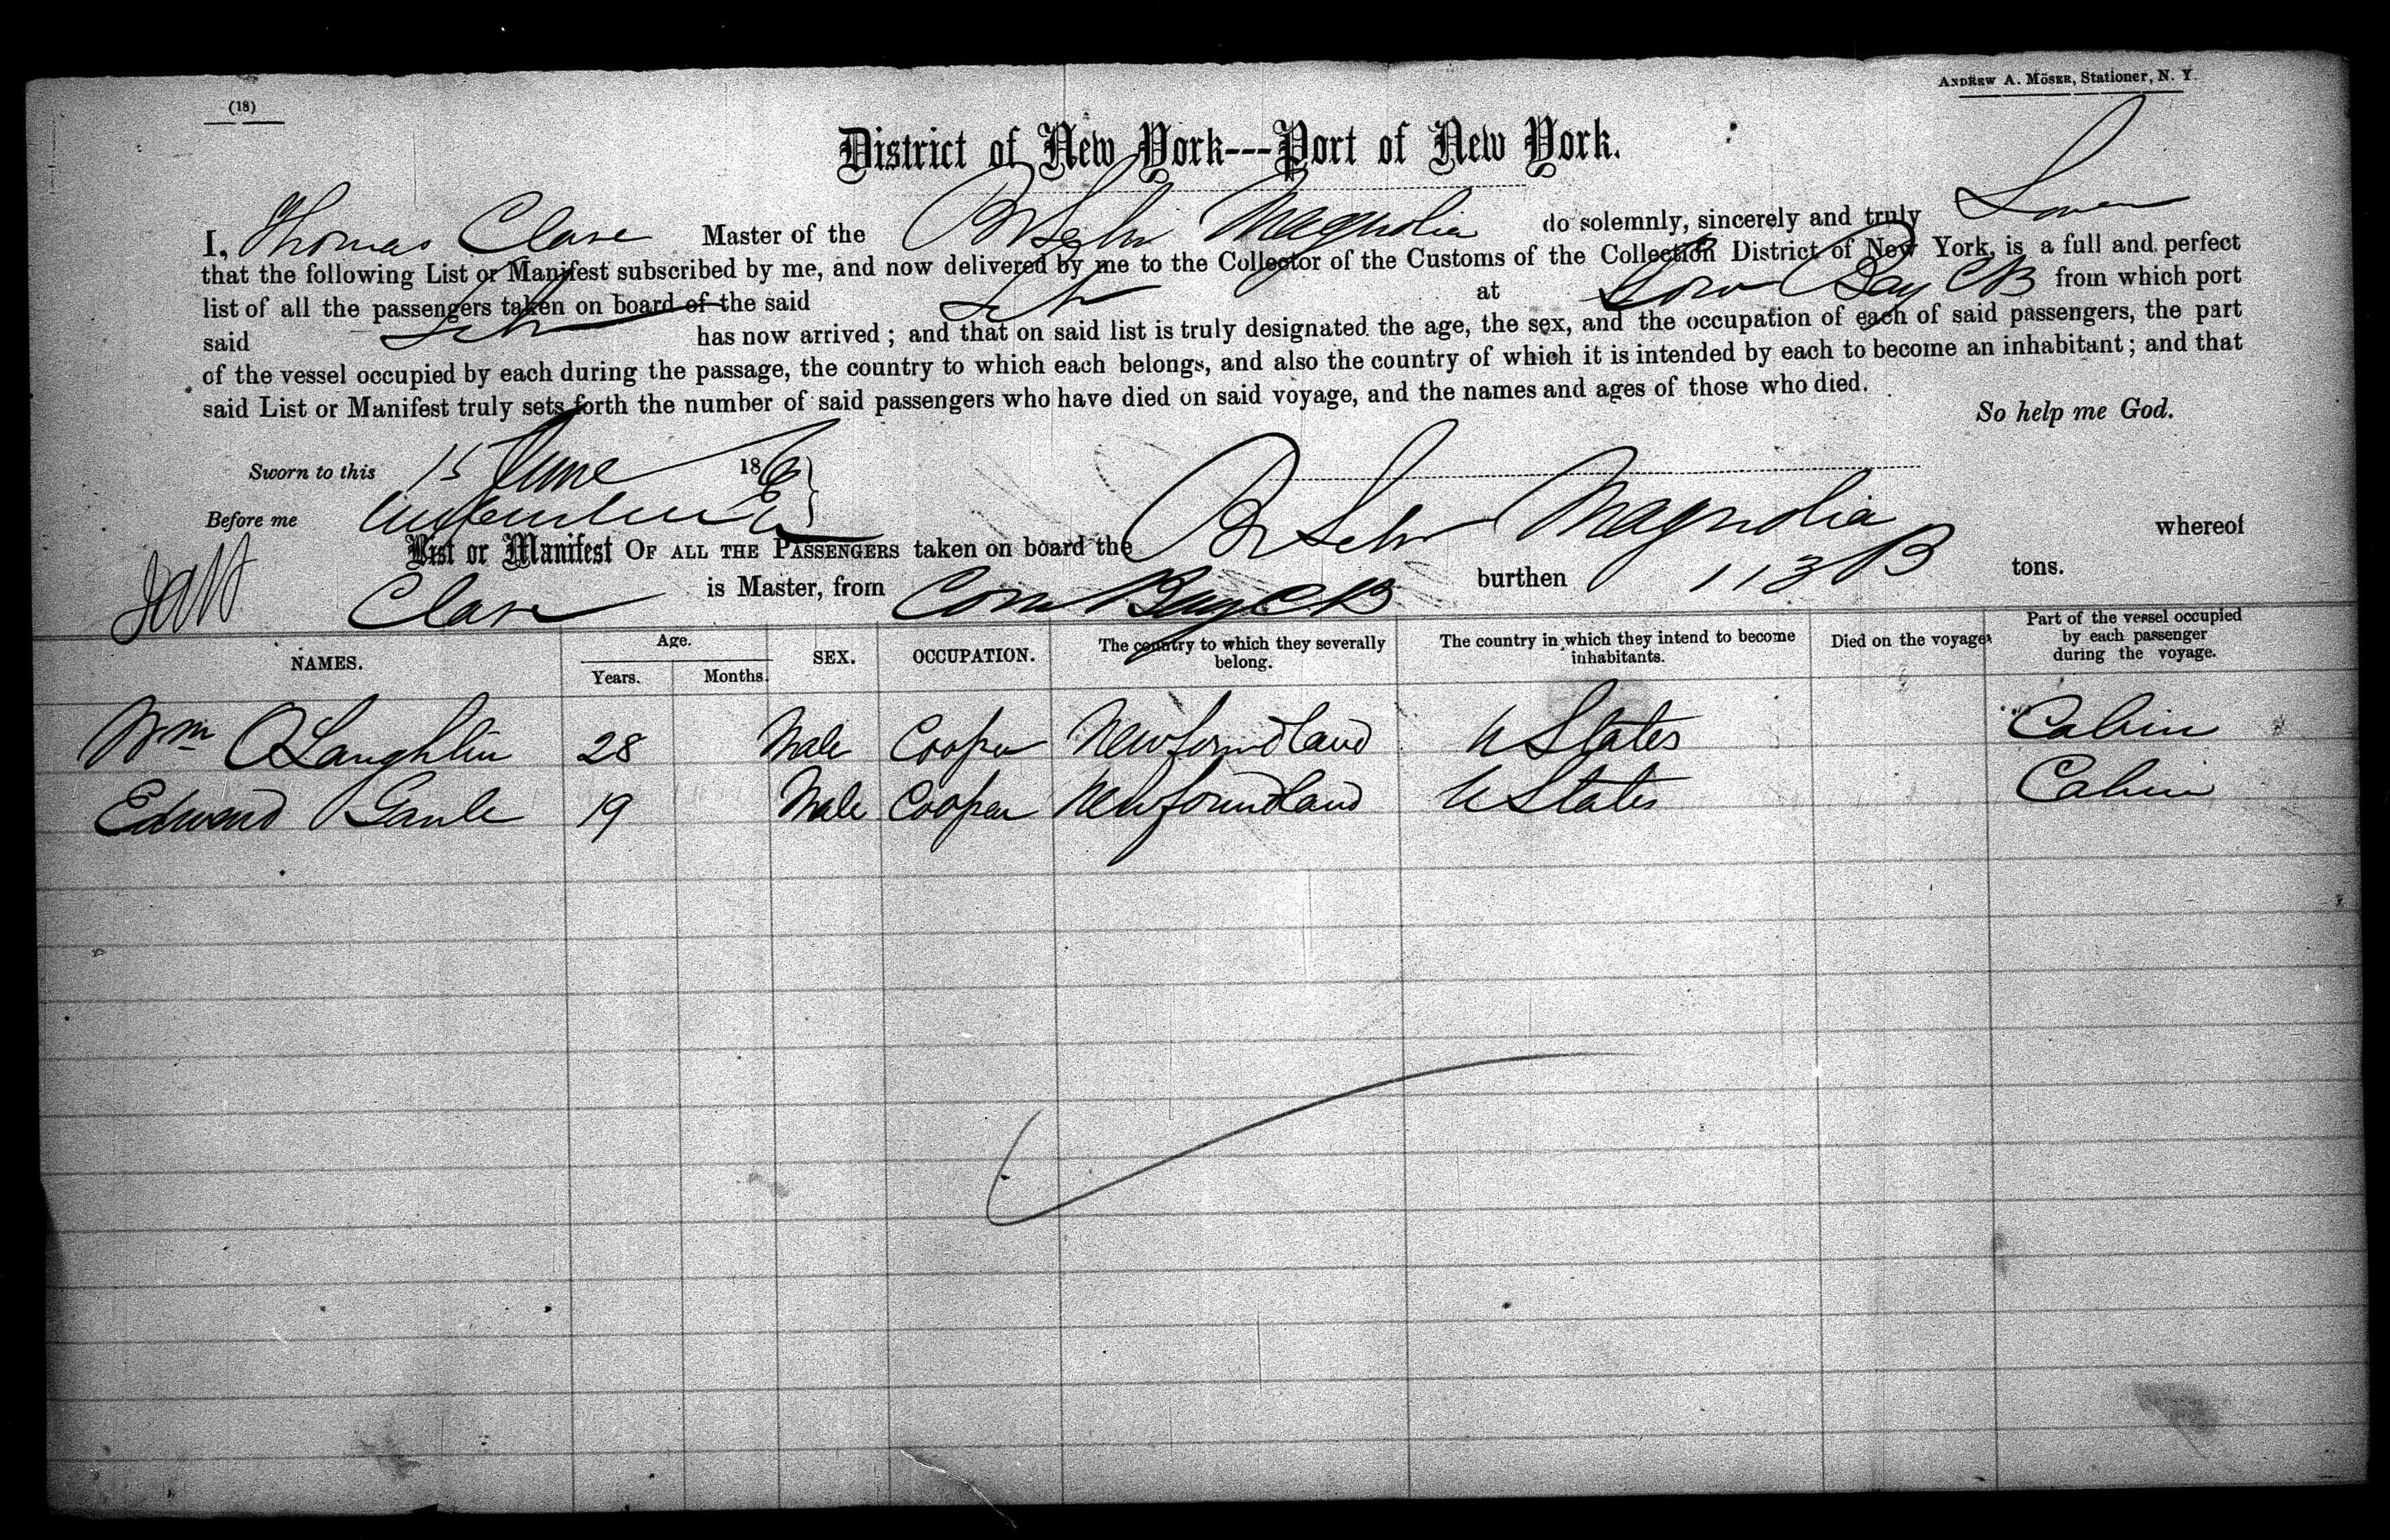 (18)
ANDREW A. MÖSER, Stationer, N. Y.
District of New York---Port of New York.
I, Thomas Clare Master of the Br Schr Magnolia do solemnly, sincerely and truly Swear
that the following List or Manifest subscribed by me, and now delivered by me to the Collector of the Customs of the Collection District of New York, is a full and perfect
list of all the passengers taken on board of the said Schr at Cow Bay CB from which port
said Schr has now arrived; and that on said list is truly designated the age, the sex, and the occupation of each of said passengers, the part
of the vessel occupied by each during the passage, the country to which each belongs, and also the country of which it is intended by each to become an inhabitant; and that
said List or Manifest truly sets forth the number of said passengers who have died on said voyage, and the names and ages of those who died.
So help me God.
Sworn to this 15 June 186
Before me
List or Manifest OF ALL THE PASSENGERS taken on board the Br Schr Magnolia whereof
Clare is Master, from Cow Bay CB burthen 113 tons.
NAMES. Age. Years. Months. SEX. OCCUPATION. The country to which they severally belong. The country in which they intend to become inhabitants. Died on the voyage. Part of the vessel occupied by each passenger during the voyage.
Wm OLaughlin 28 Male Cooper Newfoundland U States Cabin
Edward Gaule 19 Male Cooper Newfoundland U States Cabin